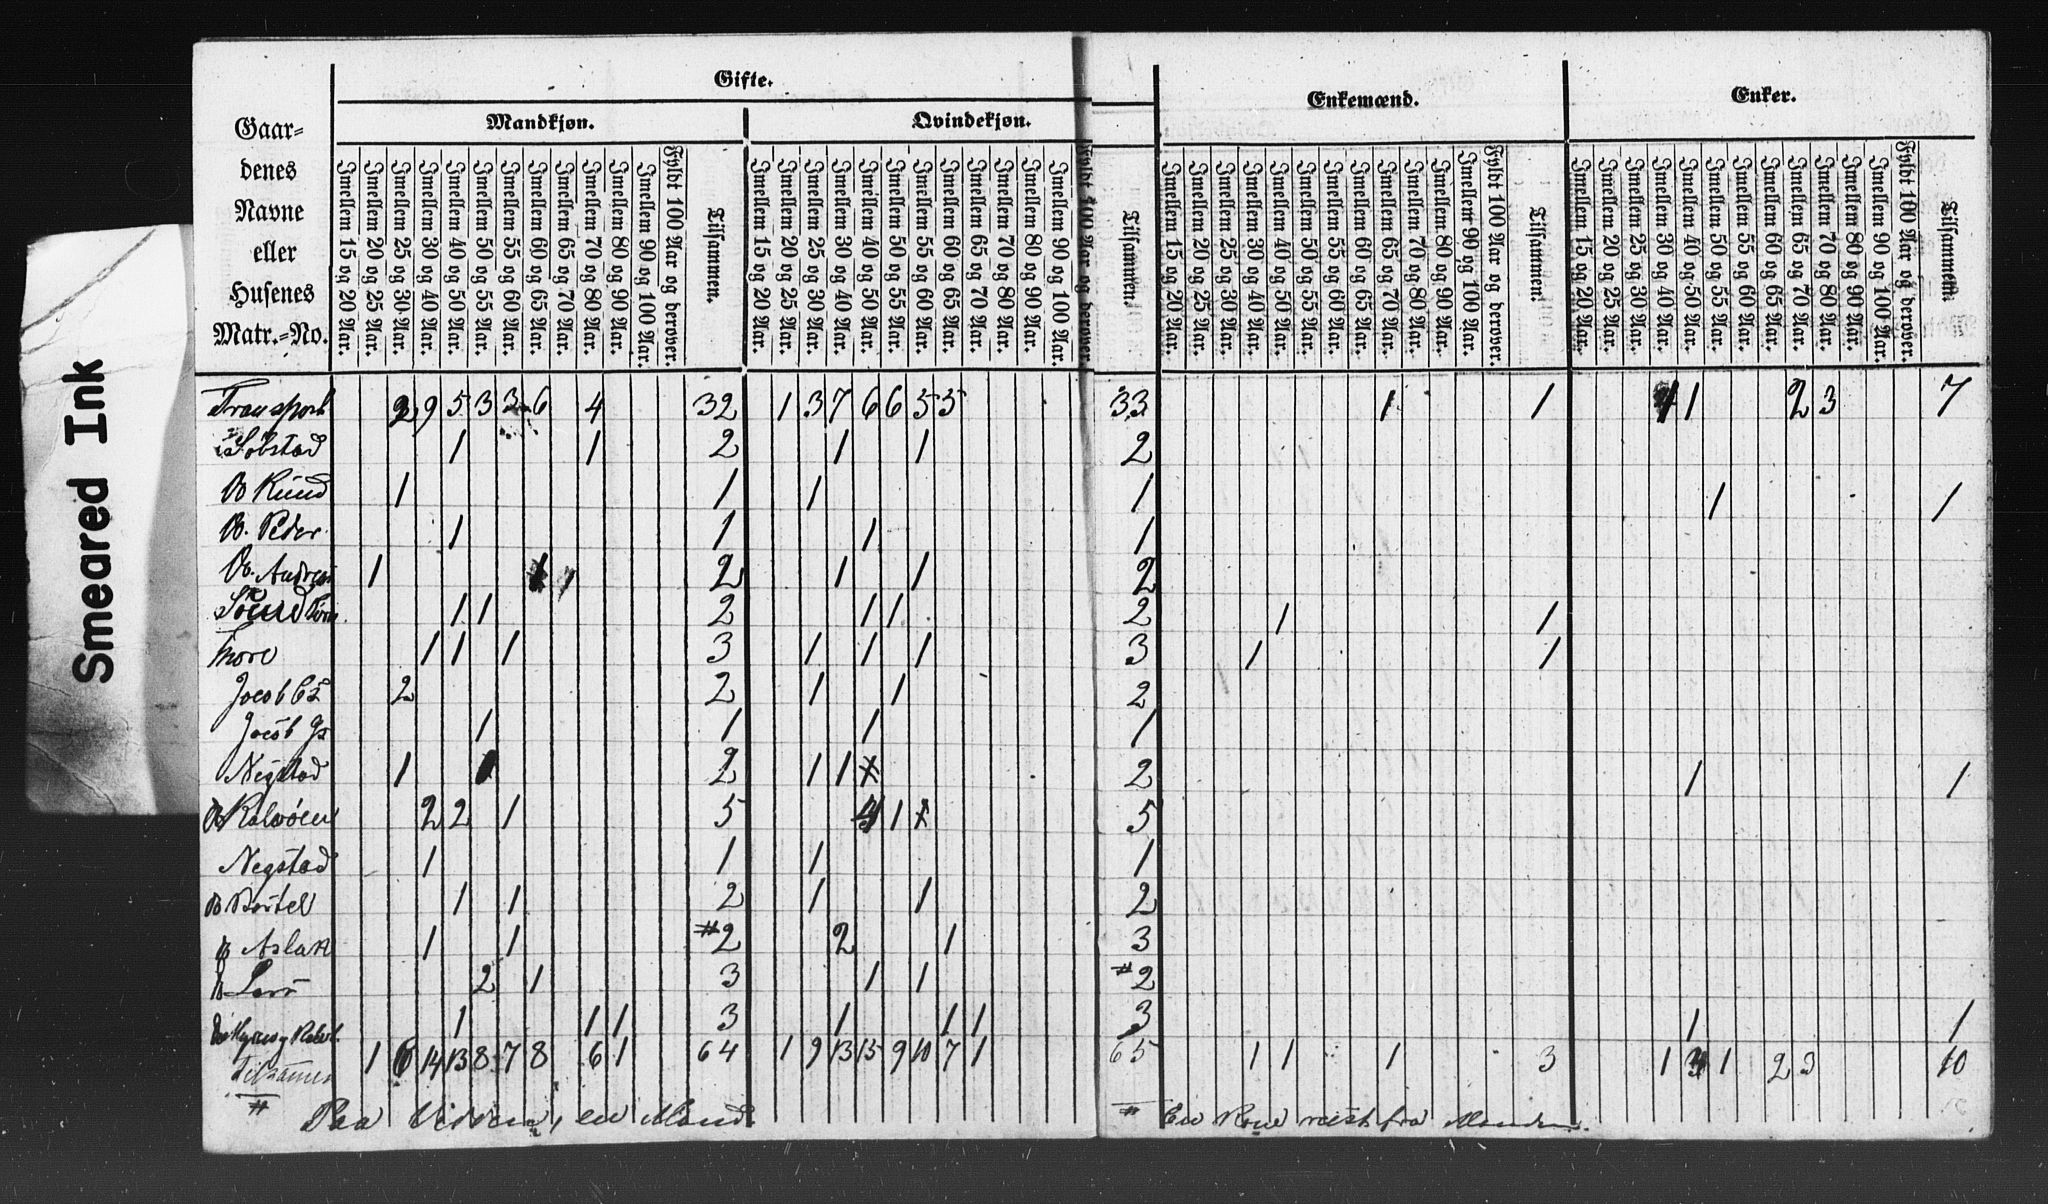 Smeared Ink
Gifte.
Enkemænd.
Enker.
Mandkjøn.
Qvindekjøn.
Gaar-
denes
Navne
eller
Husenes
Matr.-No.
Imellem 15 og 20 Aar. Imellem 20 og 25 Aar. Imellem 25 og 30 Aar. Imellem 30 og 40 Aar. Imellem 40 og 50 Aar. Imellem 50 og 55 Aar. Imellem 55 og 60 Aar. Imellem 60 og 65 Aar. Imellem 65 og 70 Aar. Imellem 70 og 80 Aar. Imellem 80 og 90 Aar. Imellem 90 og 100 Aar. Fyldt 100 Aar og derover. Tilsammen.
Imellem 15 og 20 Aar. Imellem 20 og 25 Aar. Imellem 25 og 30 Aar. Imellem 30 og 40 Aar. Imellem 40 og 50 Aar. Imellem 50 og 55 Aar. Imellem 55 og 60 Aar. Imellem 60 og 65 Aar. Imellem 65 og 70 Aar. Imellem 70 og 80 Aar. Imellem 80 og 90 Aar. Imellem 90 og 100 Aar. Fyldt 100 Aar og derover. Tilsammen.
Imellem 15 og 20 Aar. Imellem 20 og 25 Aar. Imellem 25 og 30 Aar. Imellem 30 og 40 Aar. Imellem 40 og 50 Aar. Imellem 50 og 55 Aar. Imellem 55 og 60 Aar. Imellem 60 og 65 Aar. Imellem 65 og 70 Aar. Imellem 70 og 80 Aar. Imellem 80 og 90 Aar. Imellem 90 og 100 Aar. Fyldt 100 Aar og derover. Tilsammen.
Imellem 15 og 20 Aar. Imellem 20 og 25 Aar. Imellem 25 og 30 Aar. Imellem 30 og 40 Aar. Imellem 40 og 50 Aar. Imellem 50 og 55 Aar. Imellem 55 og 60 Aar. Imellem 60 og 65 Aar. Imellem 65 og 70 Aar. Imellem 70 og 80 Aar. Imellem 80 og 90 Aar. Imellem 90 og 100 Aar. Fyldt 100 Aar og derover. Tilsammen.
Transport 2 9 5 3 3 6 4 32 1 3 7 6 6 5 5 33 1 1 1 1 2 3 7
Søbstad 1 1 2 1 1 2
Knud 1 1 1 1 1 1
Peder 1 1 1 1
Andreas 1 1 2 1 1 2
1 1 2 1 1 2 1 1
Thore 1 1 1 3 1 1 1 3 1 1
Jacob 2 2 1 1 2
Jacob 1 1 1 1
Negstad 1 1 2 1 1 2 1 1
Kalvøen 2 2 1 5 4 1 5
Negstad 1 1 1 1
Bortel 1 1 2 1 1 2
Aslak 1 1 #2 2 1 3
Lars 2 1 3 1 1 #2
1 1 1 3 1 1 1 3 1 1
Tilsammen 1 6 14 13 8 7 8 6 1 64 1 9 13 15 9 10 7 1 65 1 1 1 3 1 3 1 2 3 10
# Paa en Mand
# En Kone reist fra Manden.